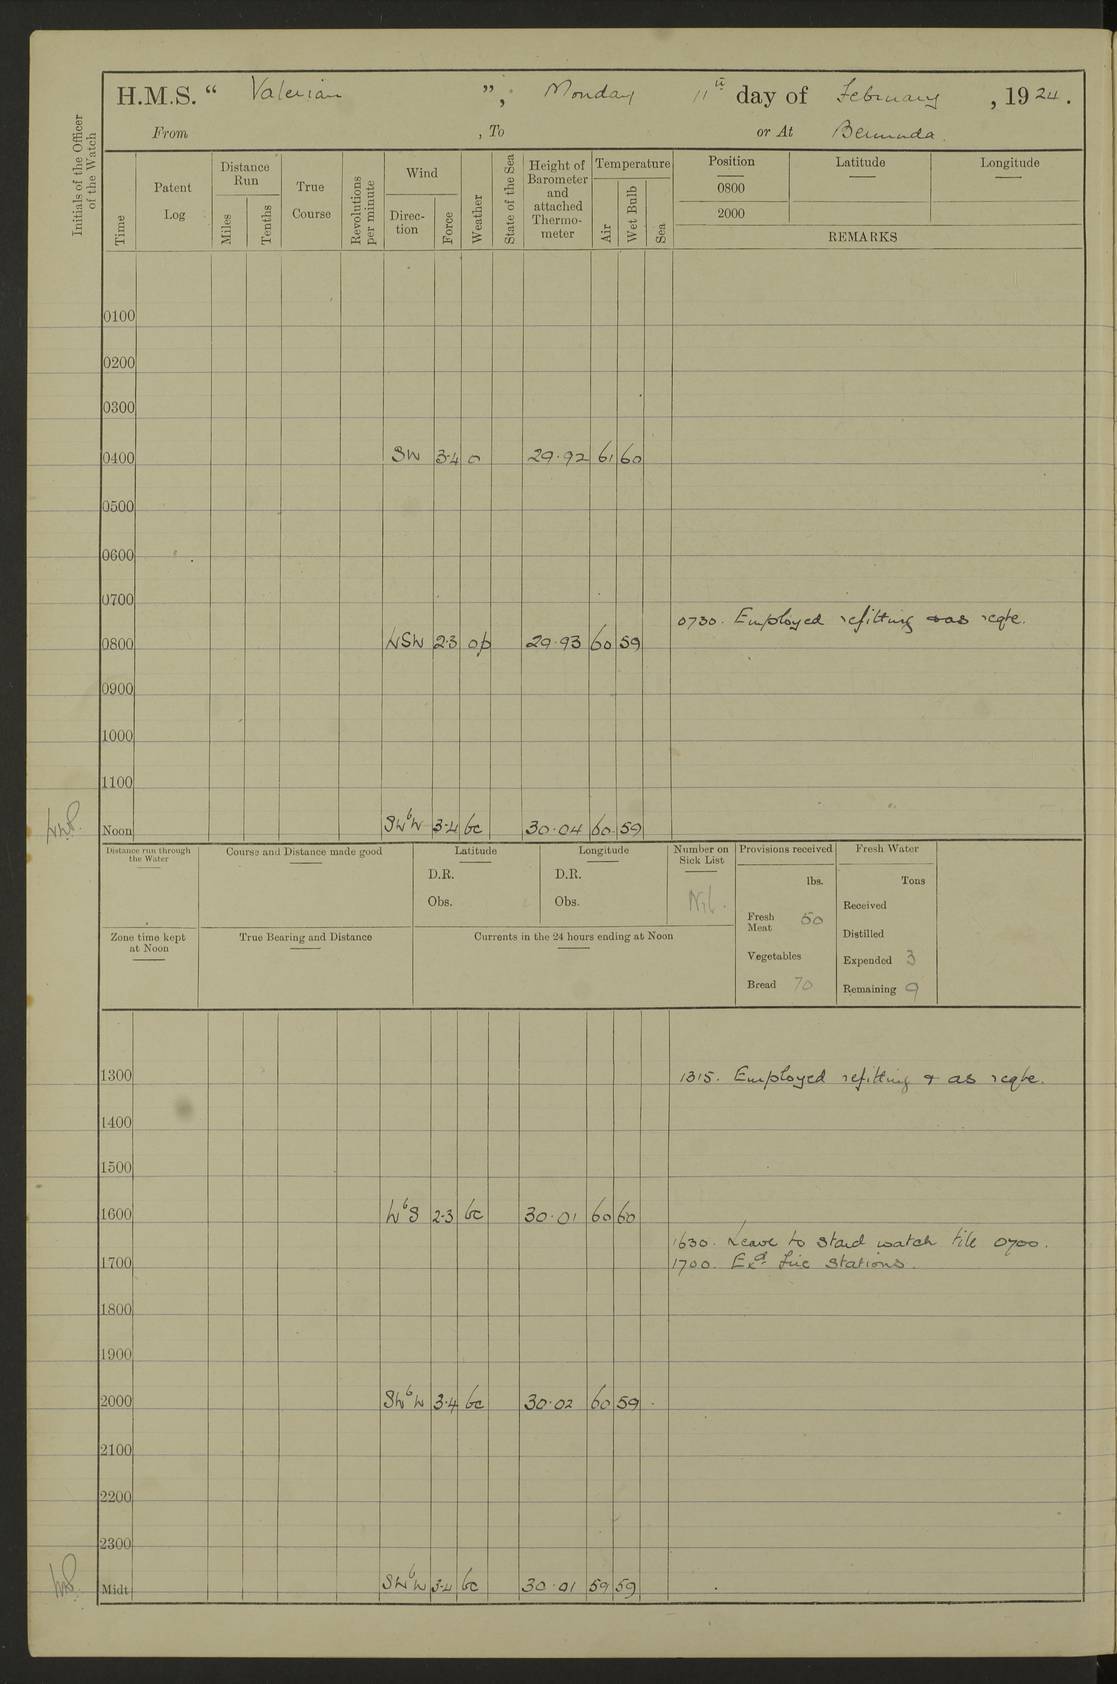 H.M.S. “ Valerian ”, Monday 11th day of February, 1924.
From , To or At Bermuda.
Initials of the Officer of the Watch
Time
Patent Log
Distance Run
Miles
Tenths
True Course
Revolutions per minute
Wind
Direction
Force
Weather
State of the Sea
Height of Barometer and attached Thermometer
Temperature
Air
Wet Bulb
Sea
Position
Latitude
Longitude
0800
2000
REMARKS
0100
0200
0300
0400 SW 3·4 o 29·92 61 60
0500
0600
0700
0730. Employed refitting & as reqte.
0800 WSW 2·3 op 29·93 60 59
0900
1000
1100
Noon SWbW 3·4 bc 30·04 60 59
Distance run through the Water
Course and Distance made good
Latitude
D.R.
Obs.
Longitude
D.R.
Obs.
Number on Sick List
Nil.
Provisions received
lbs.
Fresh Meat 50
Vegetables
Bread 70
Fresh Water
Tons
Received
Distilled
Expended 3
Remaining 9
Zone time kept at Noon
True Bearing and Distance
Currents in the 24 hours ending at Noon
1300 1315. Employed refitting & as reqte.
1400
1500
1600 WbS 2·3 bc 30·01 60 60
1630. Leave to stard watch till 0700.
1700 1700. Exd fire stations.
1800
1900
2000 SWbW 3·4 bc 30·02 60 59
2100
2200
2300
Midt SWbW 3·4 bc 30·01 59 59